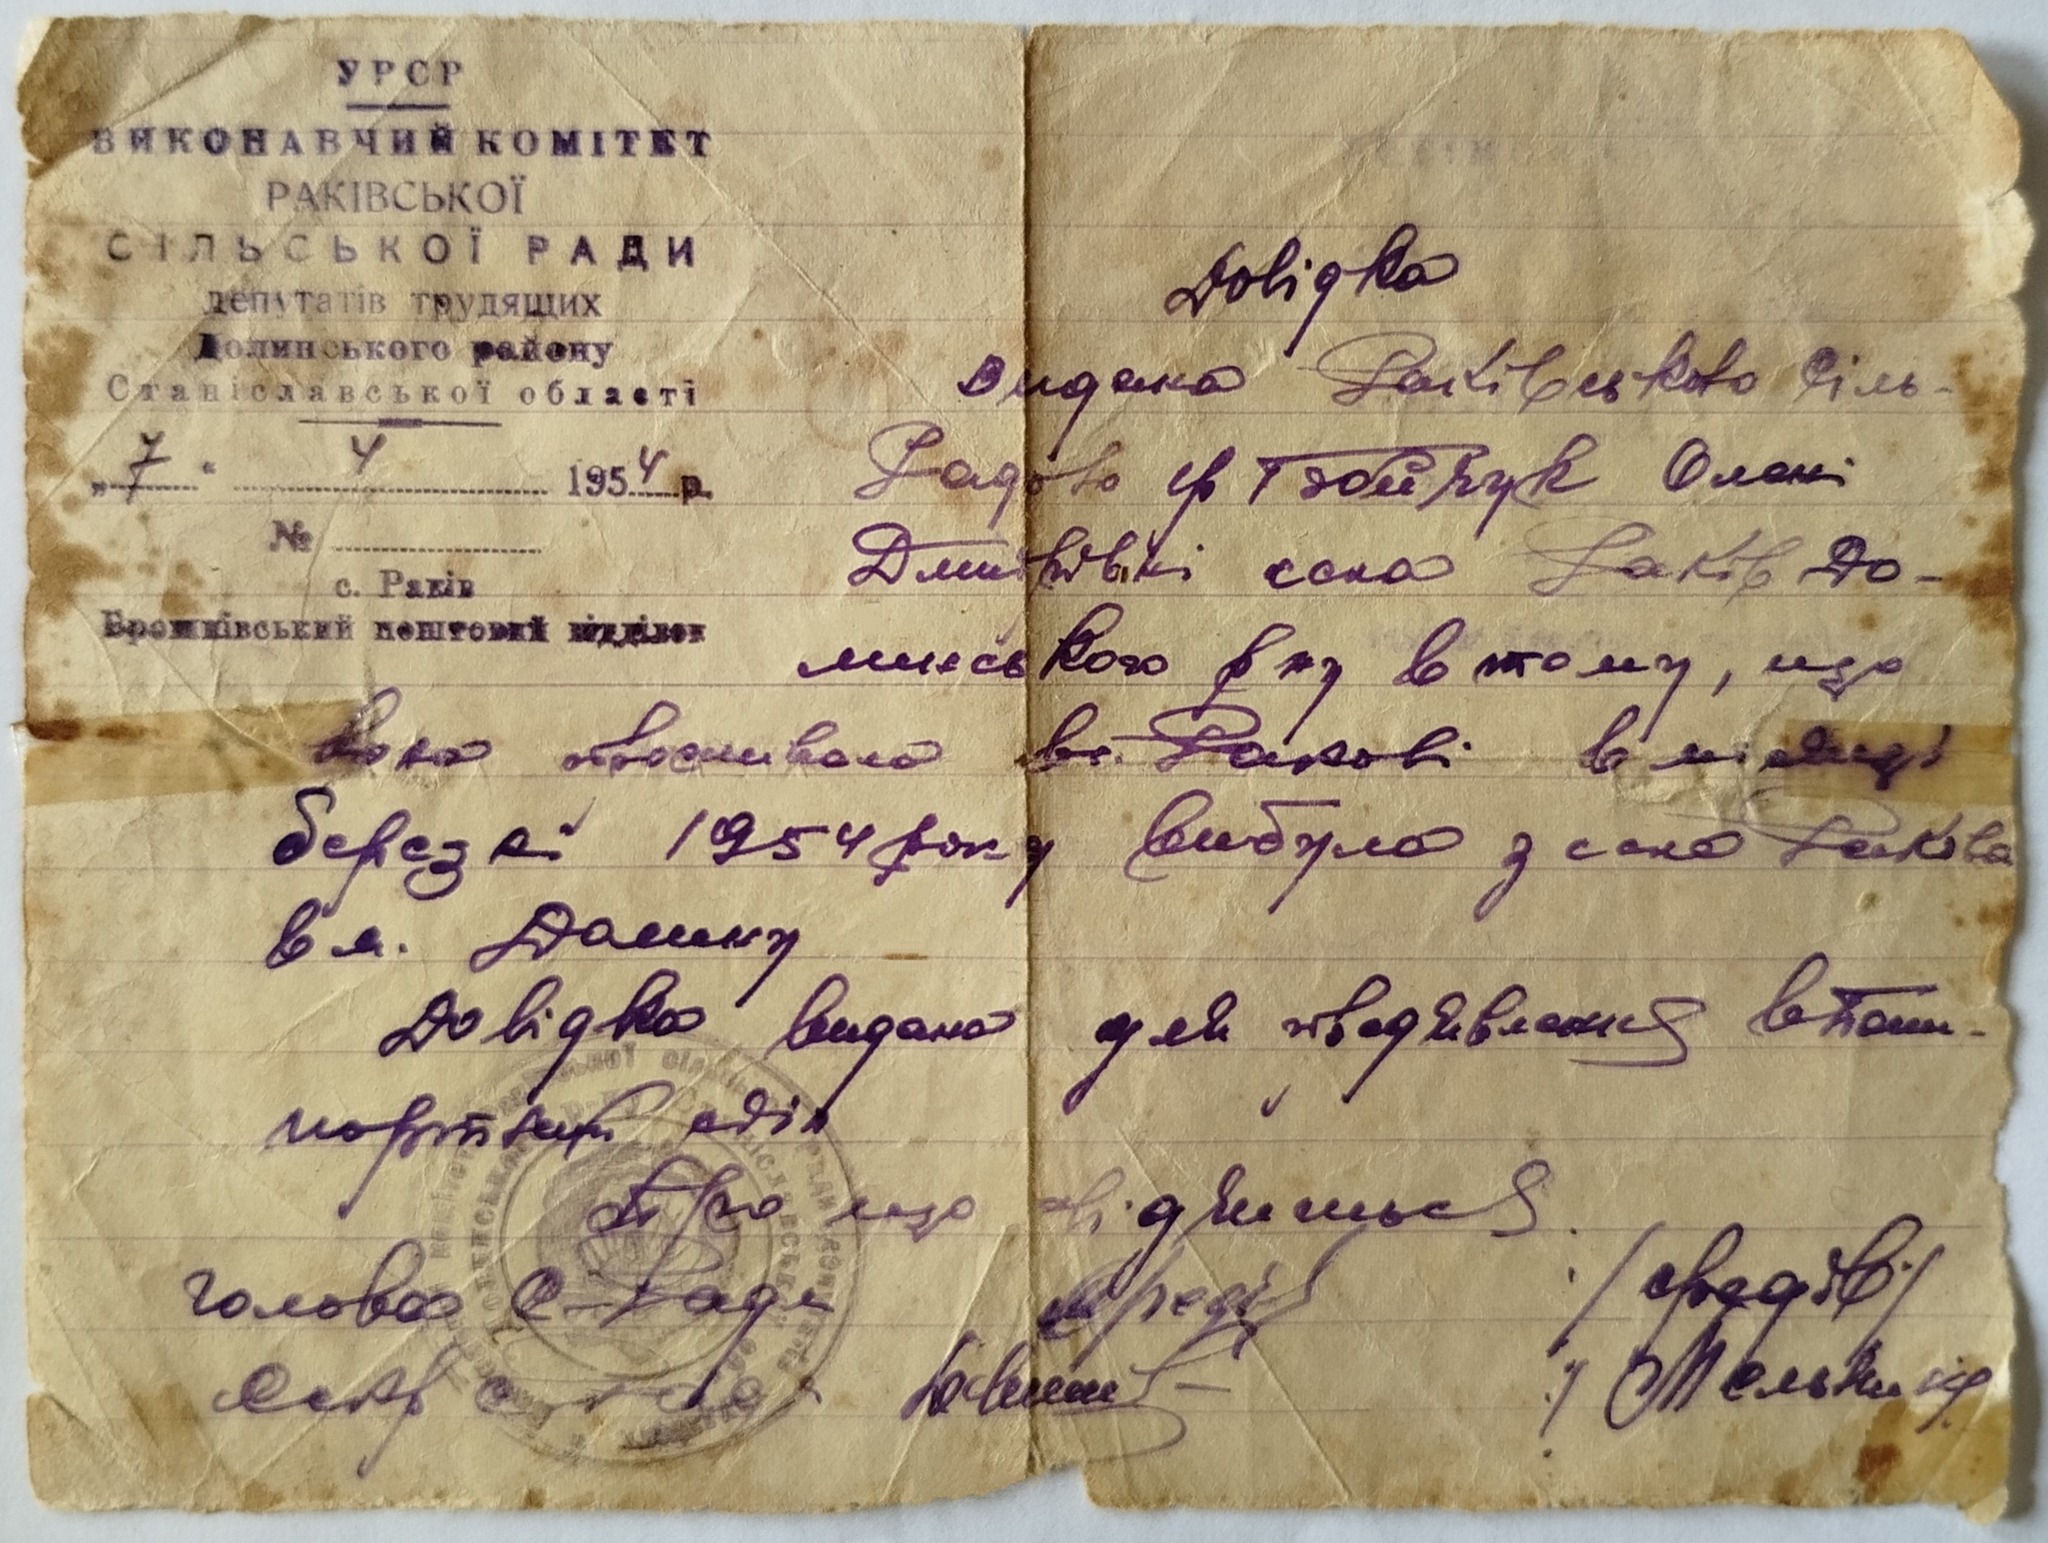 УРСР
ВИКОНАВЧИЙ КОМІТЕТ
РАКІВСЬКОЇ
СІЛЬСЬКОЇ РАДИ
депутатів трудящих
Долинського району
Станіславської області
„7“ 4 1954 р.
№
с. Раків
Брошнівський поштовий відділок
Довідка
Видана Раківського Сіль-
Радою гр Олені
Дмитрівні села Раків До-
линського р ну в тому, що
вона проживала в с. Ракові в місяці
березні 1954 року вибула з села Ракова
в м. Долину
Довідка видана для пред'явлення в Паш-
портний стіл
Про що свідчиться
голова С-Ради
Секретар /Мельник